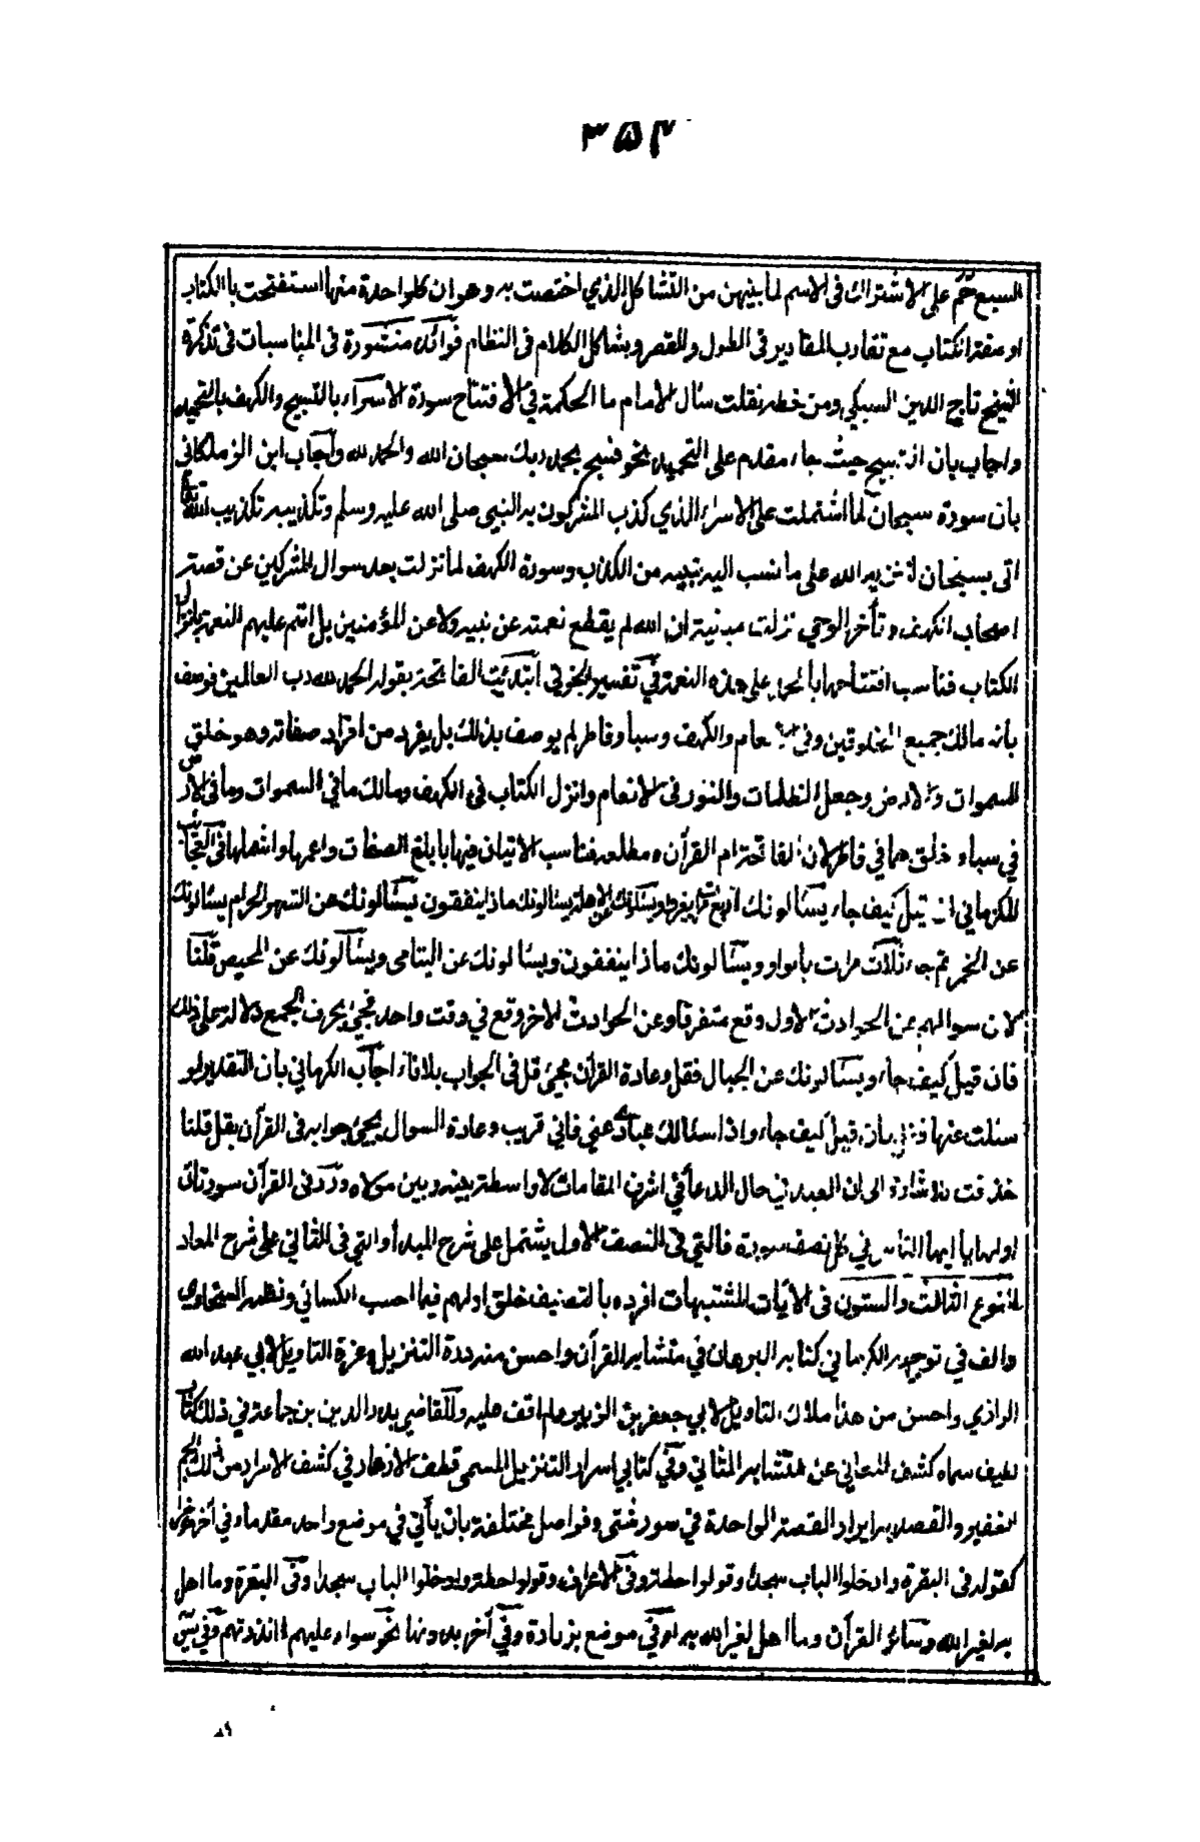 ٣٥٤
السبع حم على الاشتراك فى الاسم لما بينهن من التشاكل الذي اختصت به وهو ان كل واحدة منها استفتحت بالكتاب
او صفة الكتاب مع تقارب المقادير فى الطول والقصر وبشاكل الكلام فى النظام فوائد منثورة فى المناسبات فى تذكرة
الشيخ تاج الدين السبكي ومن خطه نقلت سئال الامام ما الحكمة في الافتتاح سورة الاسراء بالتسبيح والكهف بالتحميد
واجاب بان التسبيح حيث جاء مقدم على التحميد نحو فسبح بحمد ربك سبحان الله والحمد لله واجاب ابن الزملكانى
بان سورة سبحان لما اشتملت على الاسراء الذي كذب المشركون به النبى صلى الله عليه وسلم وتكذيبه تكذيب الله تعالى
اتى بسبحان لتنزيه الله على ما نسب اليه نبيه من الكذب وسورة الكهف لما نزلت بعد سوال المشركين عن قصة
اصحاب الكهف وتأخر الوحي نزلت مبينة ان الله لم يقطع نعمته عن نبيه ولا عن المؤمنين بل اتم عليهم النعمة بانزال
الكتاب فناسب افتتاحها بالحمد على هذه النعمة في تفسير الخوئى ابتدئت الفاتحة بقوله الحمد لله رب العالمين فوصف
بانه مالك جميع المخلوقين وفى الانعام والكهف وسبا وفاطر لم يوصف بذلك بل بفرد من افراد صفاته وهو خلق
السموات والارض وجعل الظلمات والنور فى الانعام وانزل الكتاب فى الكهف ومالك ما في السموات وما فى الارض
في سباء وخلقهما في فاطر لان الفاتحة ام القرآن ومطلعه فناسب الاتيان فيها بابلغ الصفات واعمها واشملها فى العجائب
للكرماني ان قيل كيف جاء يسئالونك اربع مرات بغير واو يسئلونك عن الاهلة يسئالونك ماذا ينفقون يسئالونك عن الشهر الحرام يسئالونك
عن الخمر ثم جاء ثلاث مرات بالواو ويسئالونك ماذا ينفقون ويسئالونك عن اليتامى ويسئالونك عن المحيض قلنا
لان سوالهم عن الحوادث الاول وقع متفرقا وعن الحوادث الاخر وقع في وقت واحد فجئ بحرف الجمع دلالة على ذلك
فان قيل كيف جاء ويسئالونك عن الجبال فقل وعادة القرآن مجئ قل فى الجواب بلا فاء اجاب الكرماني بان التقدير لو
سئلت عنها فقل فان قيل كيف جاء واذا سئالك عبادى عني فاني قريب وعادة السوال يجئ جوابه فى القرآن بقل قلنا
حذفت للاشارة الى ان العبد في حال الدعاء في اشرف المقامات لا واسطة بينه وبين مولاه ورد فى القرآن سورتان
اولها يا ايها الناس في كل نصف سورة فالتي فى النصف الاول يشتمل على شرح المبدأ والتي فى الثاني على شرح المعاد
النوع الثالث والستون فى الآيات المشتبهات افرده بالتصنيف خلق اولهم فيما احسب الكسائي ونظمه السخاوي
والف في توجيهه الكرماني كتابه البرهان في متشابه القرآن واحسن منه درة التنزيل وغرة التاويل لابي عبد الله
الرازي واحسن من هذا ملاك التاويل لابي جعفر بن الزبير ولم اقف عليه وللقاضي بدر الدين بن جماعة في ذلك كتاب
لطيف سماه كشف المعاني عن متشابه المثاني وفي كتابي اسرار التنزيل المسمى قطف الازهار في كشف الاسرار من ذلك الجم
الغفير والقصد به ايراد القصة الواحدة في سور شتى وفواصل مختلفة بان يأتي في موضع واحد مقدما وفي آخر مؤخرا
كقوله فى البقرة وادخلوا الباب سجدا وقولوا حطة وفى الاعراف وقولوا حطة وادخلوا الباب سجدا وفى البقرة وما اهل
به لغير الله وسائر القرآن وما اهل لغير الله به او في موضع بزيادة وفي آخر بدونها نحو سواء عليهم ءانذرتهم وفي يس